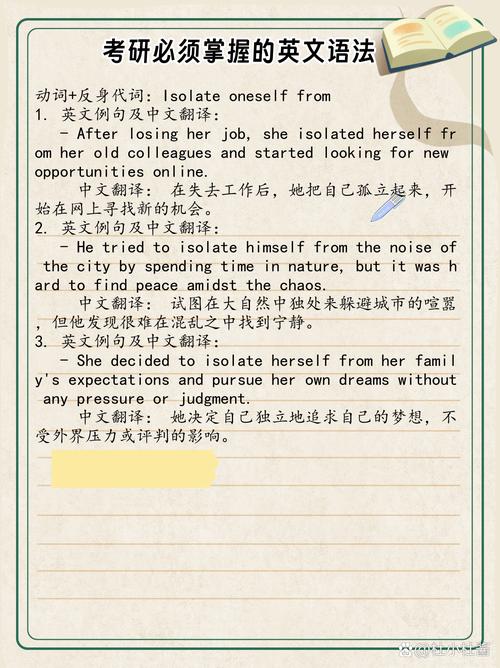 考研必须掌握的英文语法
动词+反身代词：Isolate oneself from
1. 英文例句及中文翻译：
- After losing her job, she isolated herself fr
om her old colleagues and started looking for new
opportunities online.
中文翻译： 在失去工作后，她把自己孤立起来，开
始在网上寻找新的机会。
2. 英文例句及中文翻译：
- He tried to isolate himself from the noise of
the city by spending time in nature, but it was h
ard to find peace amidst the chaos.
中文翻译： 试图在大自然中独处来躲避城市的喧嚣
，但他发现很难在混乱之中找到宁静。
3. 英文例句及中文翻译：
- She decided to isolate herself from her famil
y's expectations and pursue her own dreams without
any pressure or judgment.
中文翻译： 她决定自己独立地追求自己的梦想，不
受外界压力或评判的影响。